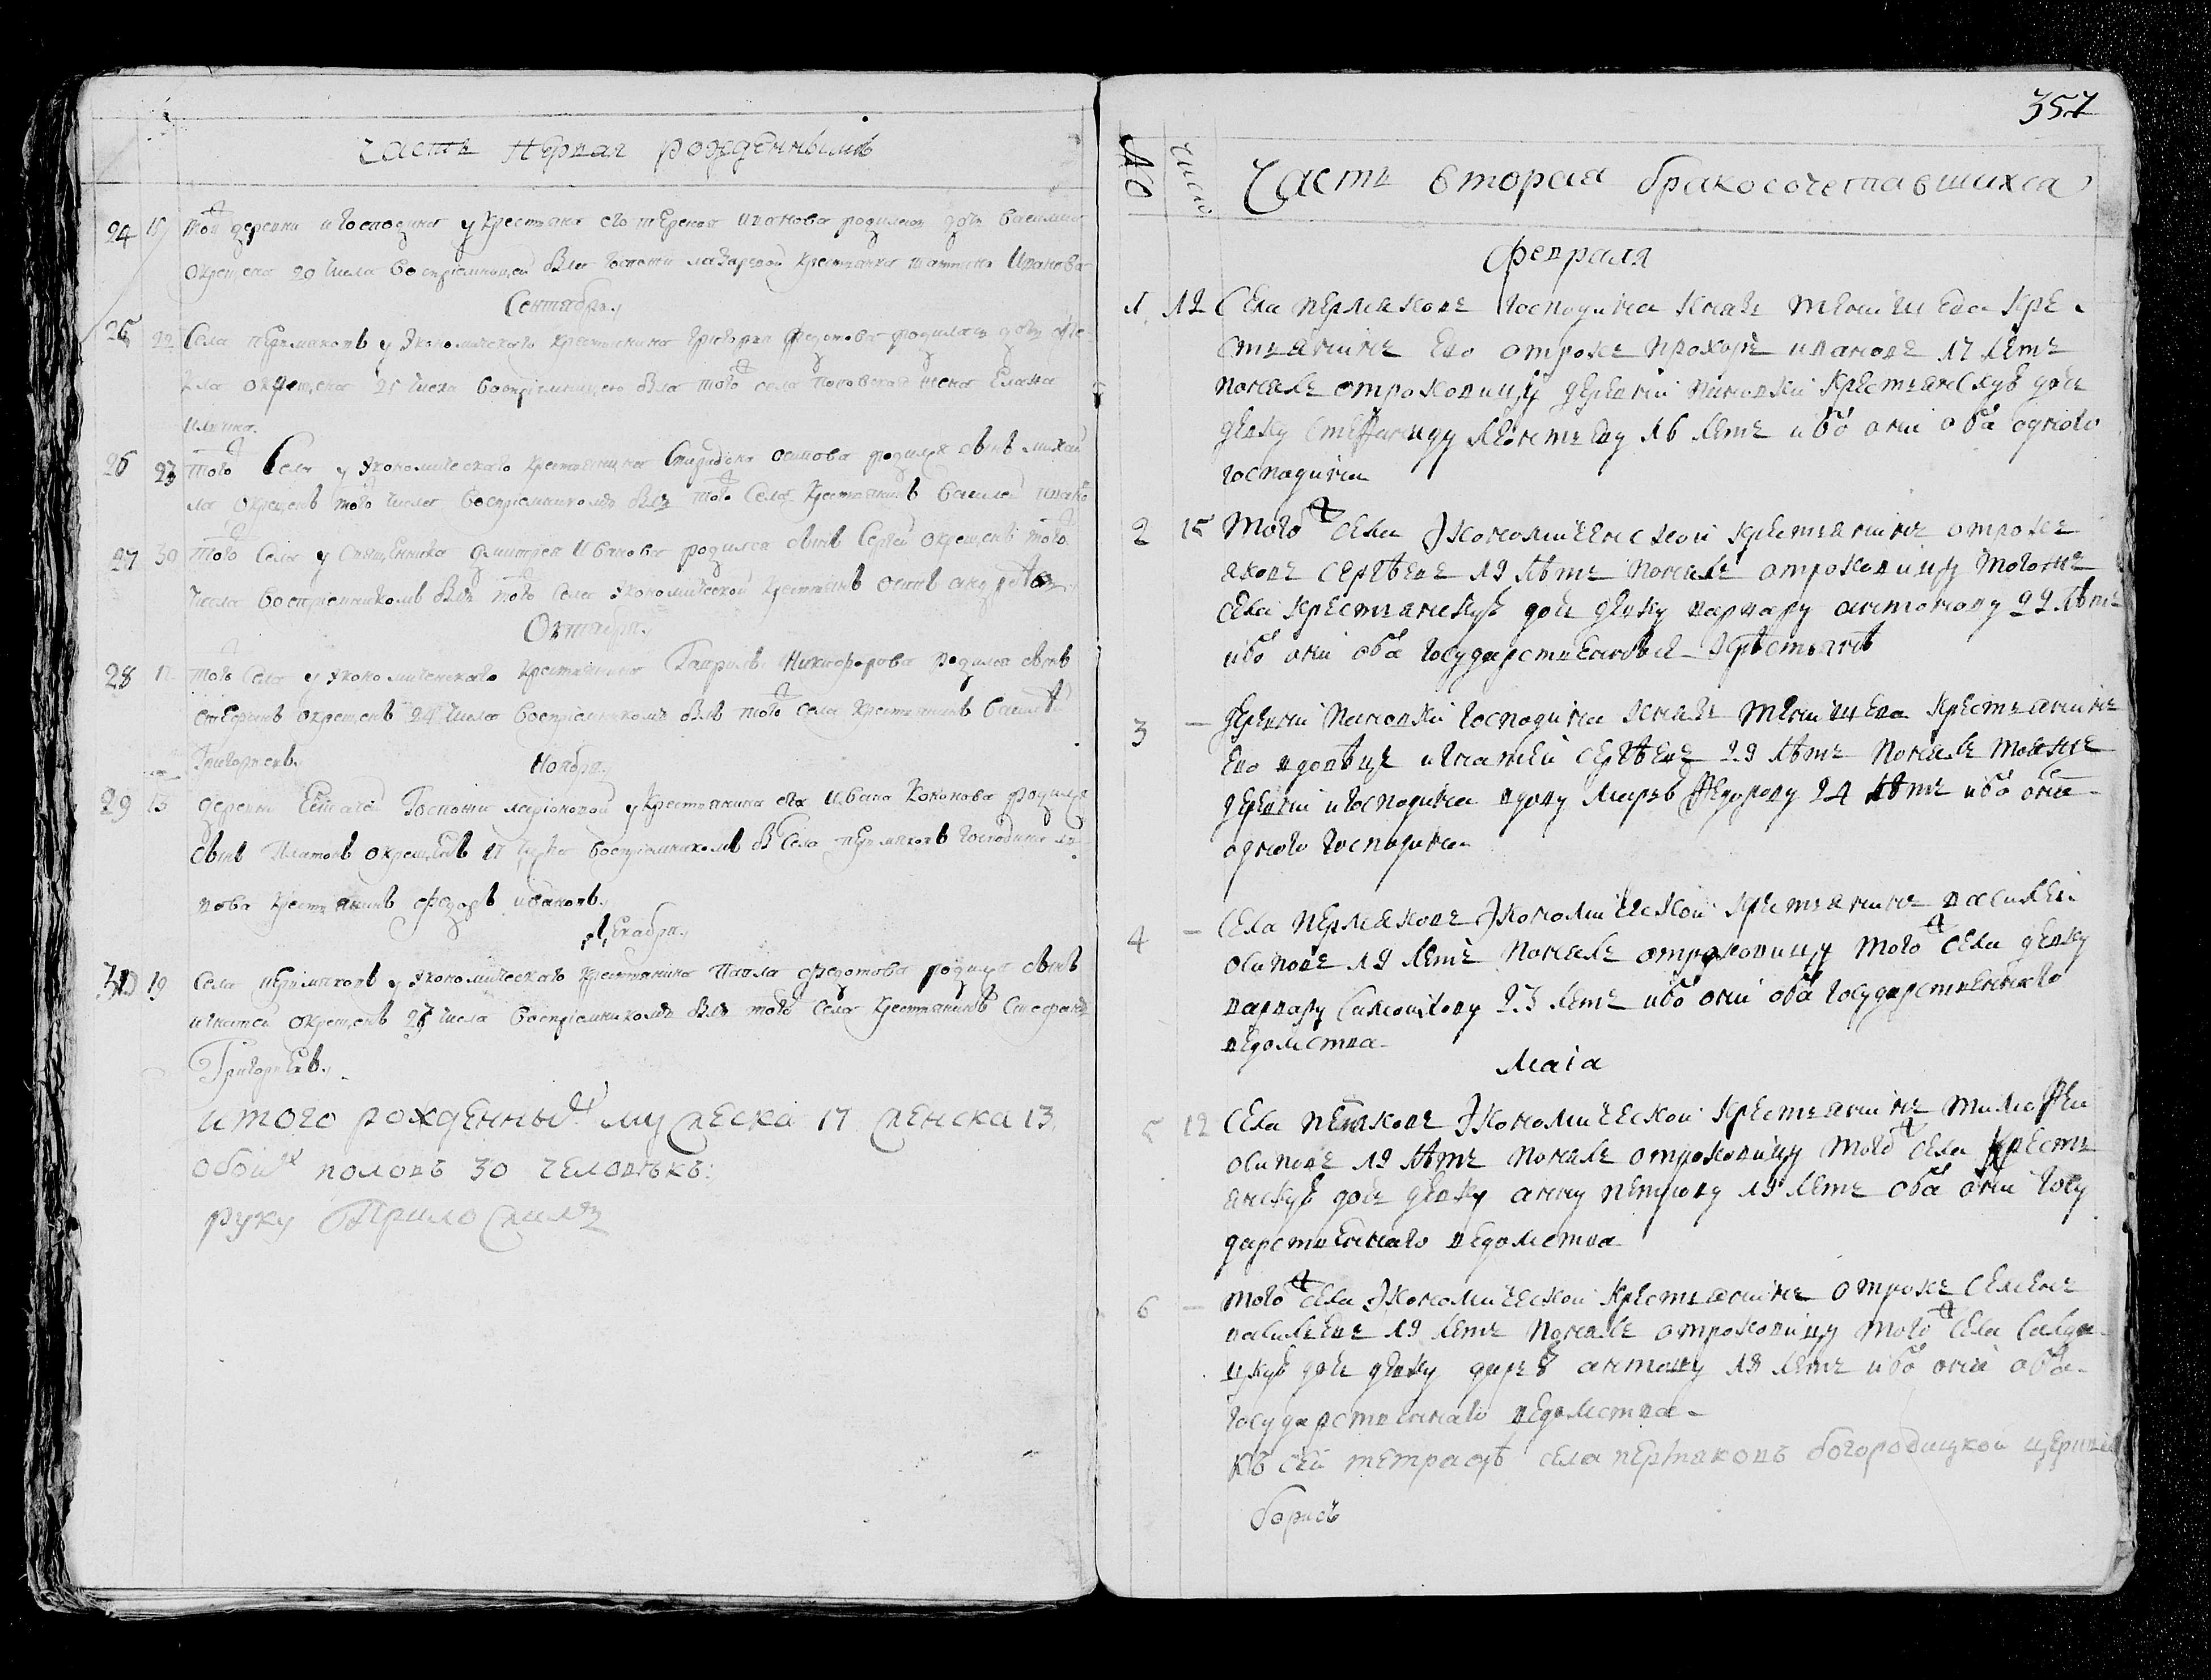 часть первая рожденнымъ
24 19 той деревни и господина у крестьяна его родилась дочь
окрещена 20 числа воспріемницей была госпожи крестьянка Иванова
Сентября
25 22 Села пермяковъ у экономическаго крестьянина Григорья Федотова родилась дочь
окрещена 25 числа воспріемницею была того села поповская жена Елена
Ильина.
26 23 того Села у экономическаго крестьянина Спиридона осипова родился сынъ михаи
ла окрещенъ того числа воспріемникомъ былъ того Села крестьянинъ Василей ивано
27 30 того Села у Священника дмитрея Иванова родился сынъ Сергей окрещенъ того
числа воспріемникомъ былъ того Села экономической осипъ андреевъ
Октября
28 12 того Села у экономическаго крестьянина Гаврилы Никифорова родился сынъ
стефанъ окрещенъ 24 числа воспріемникомъ былъ того села крестьянинъ Василей
Григорьевъ.
Ноября
29 15 деревни Госпожи у крестьянина ея Ивана родился
сынъ Платонъ окрещенъ 17 числа воспріемникомъ Села пермяковъ господина
крестьянинъ федоръ ивановъ.
Декабря
30 19 Села пермяковъ у экономическаго крестьянина Павла федотова родился сынъ
игнатей окрещенъ числа воспріемникомъ былъ того Села крестьянинъ Стефанъ
Григорьевъ.
итого рожденных мужеска 17 женска 13.
обоих половъ 30 человѣкъ:
руку Приложилъ
357
№ число Часть вторая бракосочетавшихся
февраля
1. 12 Села пермяковъ господина князь тенишева кре
стьянинъ ево отрокъ прохоръ ивановъ 17 летъ
понялъ отроковицу деревни пановки крестьянскую дочь
девку Стефаниду леонтьеву 16 летъ ибо они оба одного
господина
2 15 того ж села экономической крестьянинъ отрокъ
яковъ сергѣевъ 19 лѣтъ понялъ отроковицу того же
села крестьянскую дочь девку варвару антонову 22 лѣтъ
ибо они оба государственныя крѣстьянѣ
3 – деревни пановки господина князь тенишева крестьянинъ
ево вдовѣцъ игнатей сергѣевъ 29 лѣтъ понялъ той же
деревни и господина вдову марью федорову 24 лѣтъ ибо они
одного господина
4 – села пермяковъ экономической крестьянинъ василей
осиповъ 19 летъ понялъ отроковицу того ж села девку
варвару самоилову 23 летъ ибо они оба государственнаго
ведомства
маіа
5 12 села экономической крестьянинъ тимофей
осиповъ 19 лѣтъ понялъ отроковицу того ж села крѣсть
янскую дочь девку анну петрову 19 летъ оба они госу
дарственнаго ведомства
6 – того ж села экономической крестьянинъ отрокъ семенъ
васильевъ 19 летъ понялъ отроковицу того ж села салда
цкую дочь девку дарью 18 летъ ибо они оба
государственнаго ведомства
къ сей тетрадѣ села пермяковъ богородицкой церкви
борисъ